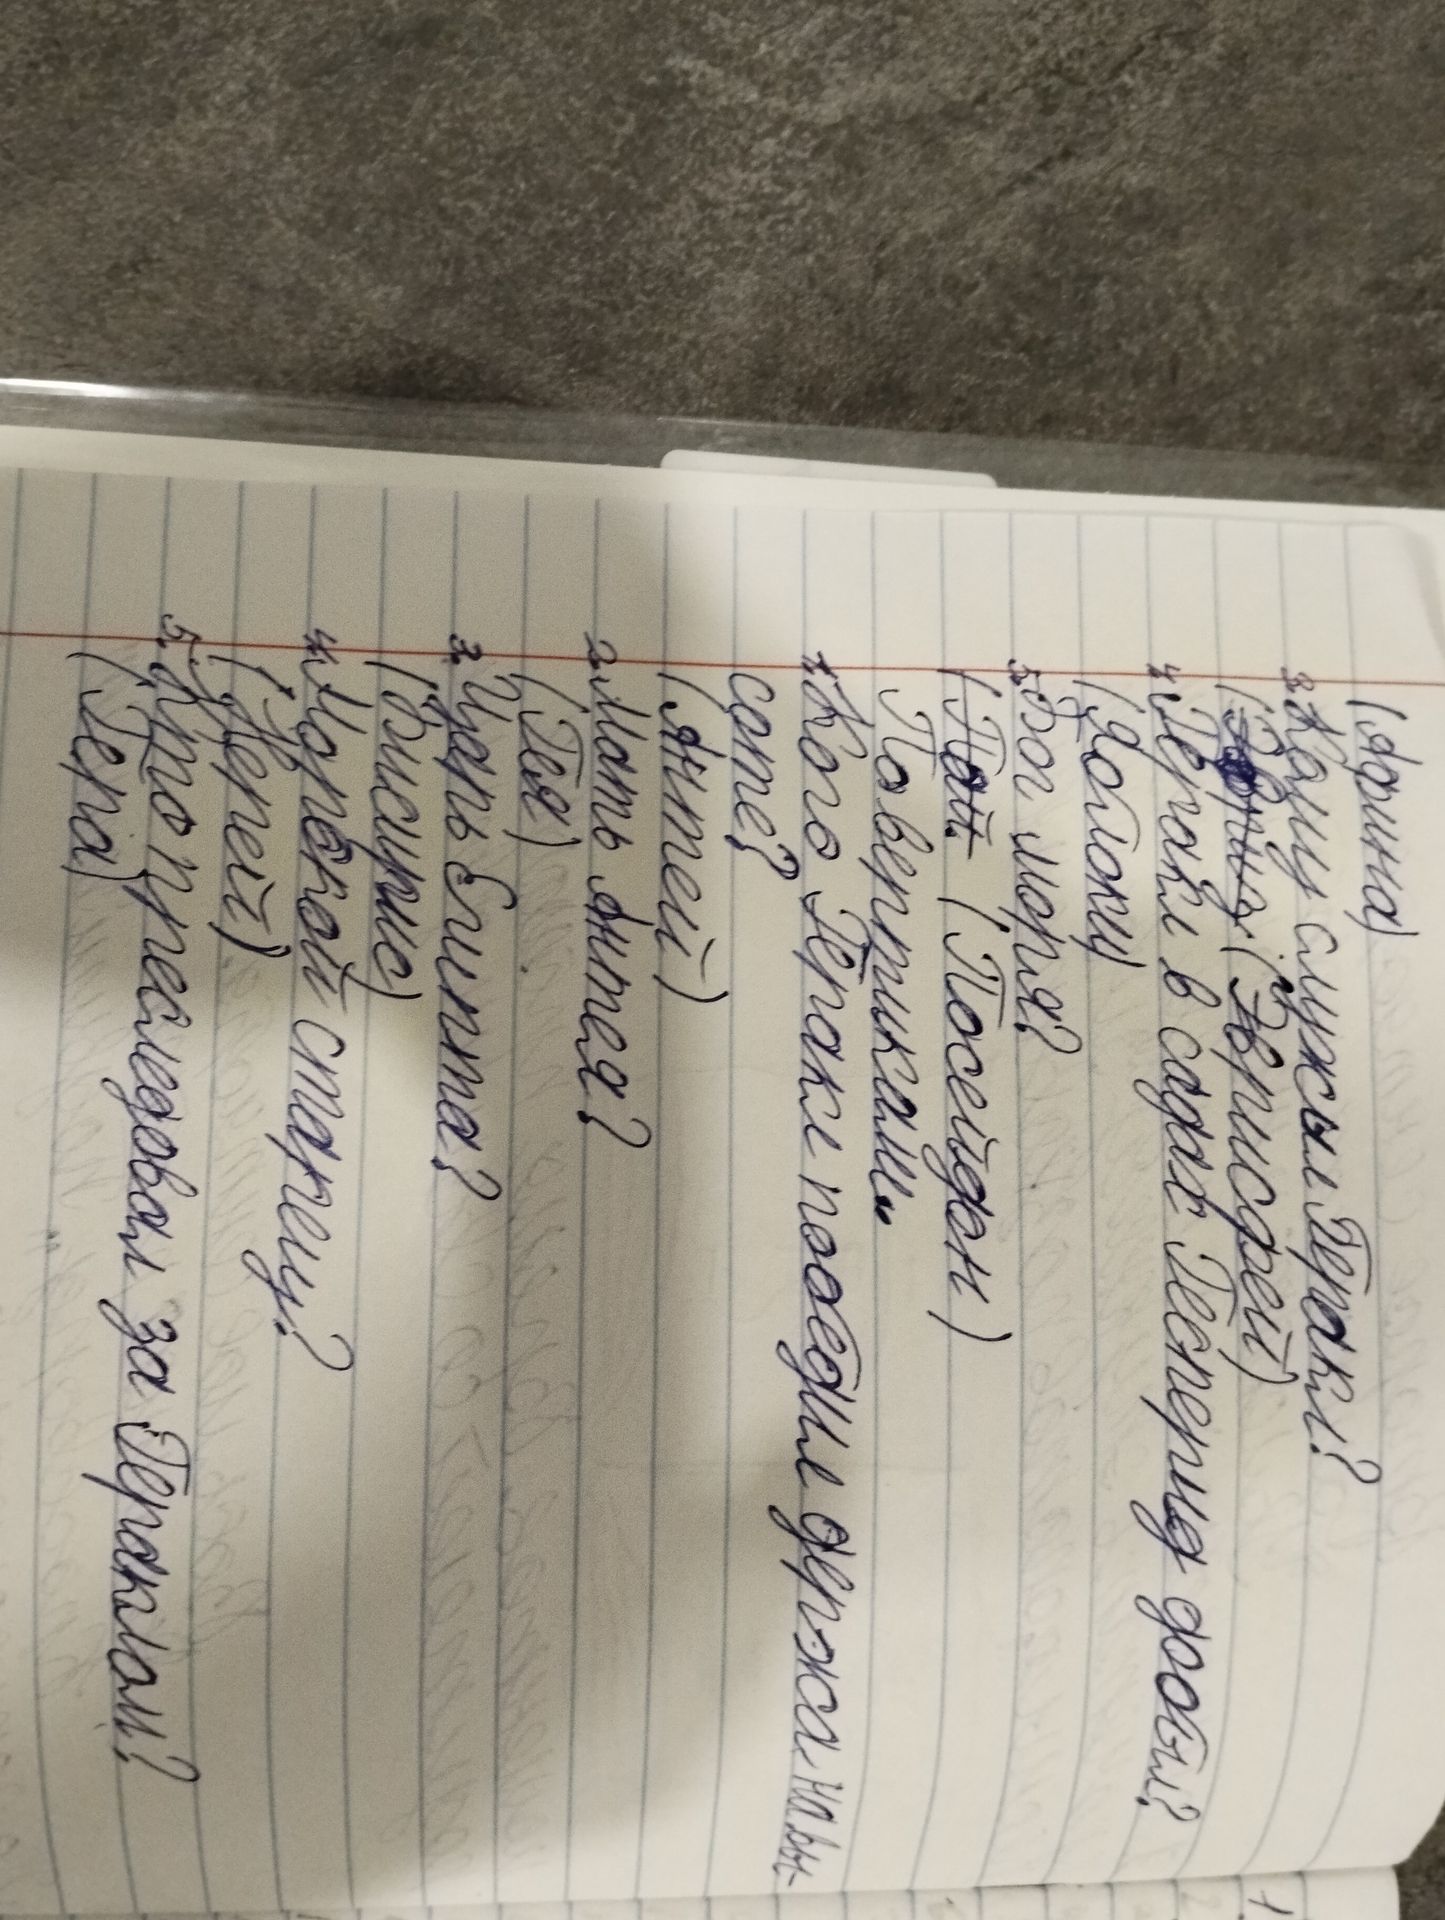 (Афина)
3. Кому служил Геракл?
(Эврисфей)
4. Геракл в садах Гесперид добыл?
(Яблоки)
5. Бог моря?
(Посейдон)
По вертикали
1. Кого Геракл победил держа на вы-
соте?
(Антей)
2. Мать Антея?
(Гея)
3. Царь Египта?
(Бисирис)
4. Морской старец?
(Нерей)
5. Кто преследовал за Гераклом?
(Гера)